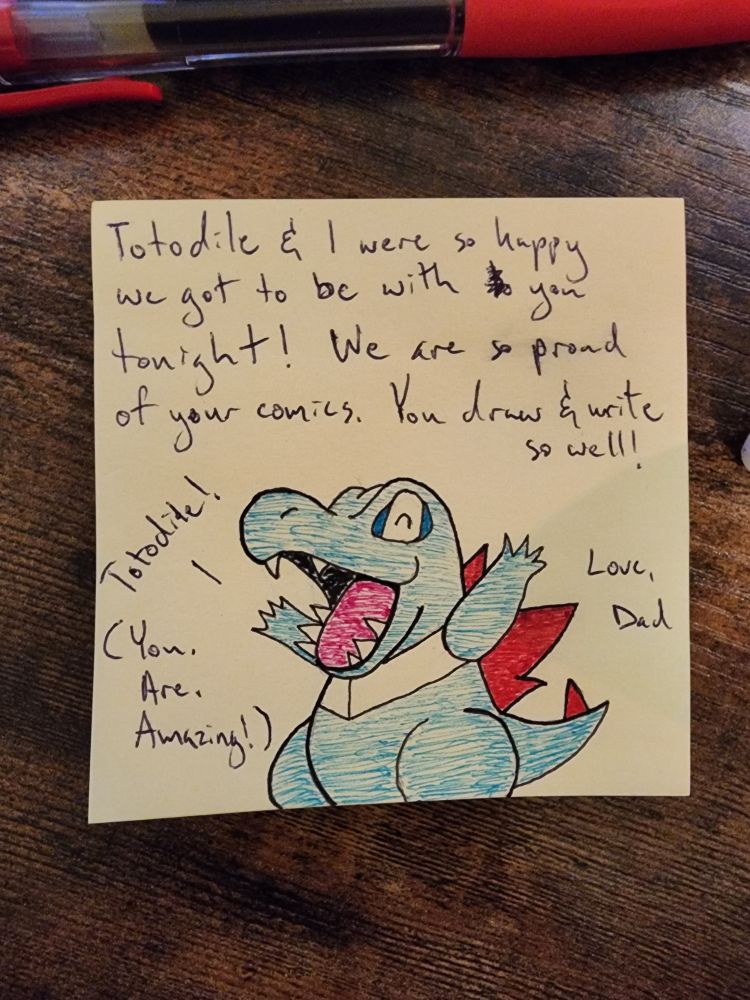 Totodile & I were so happy
we got to be with you
tonight! We are so proud
of your comics. You draw & write
so well!
Totodile!
(You.
Are.
Amazing!)
Love,
Dad